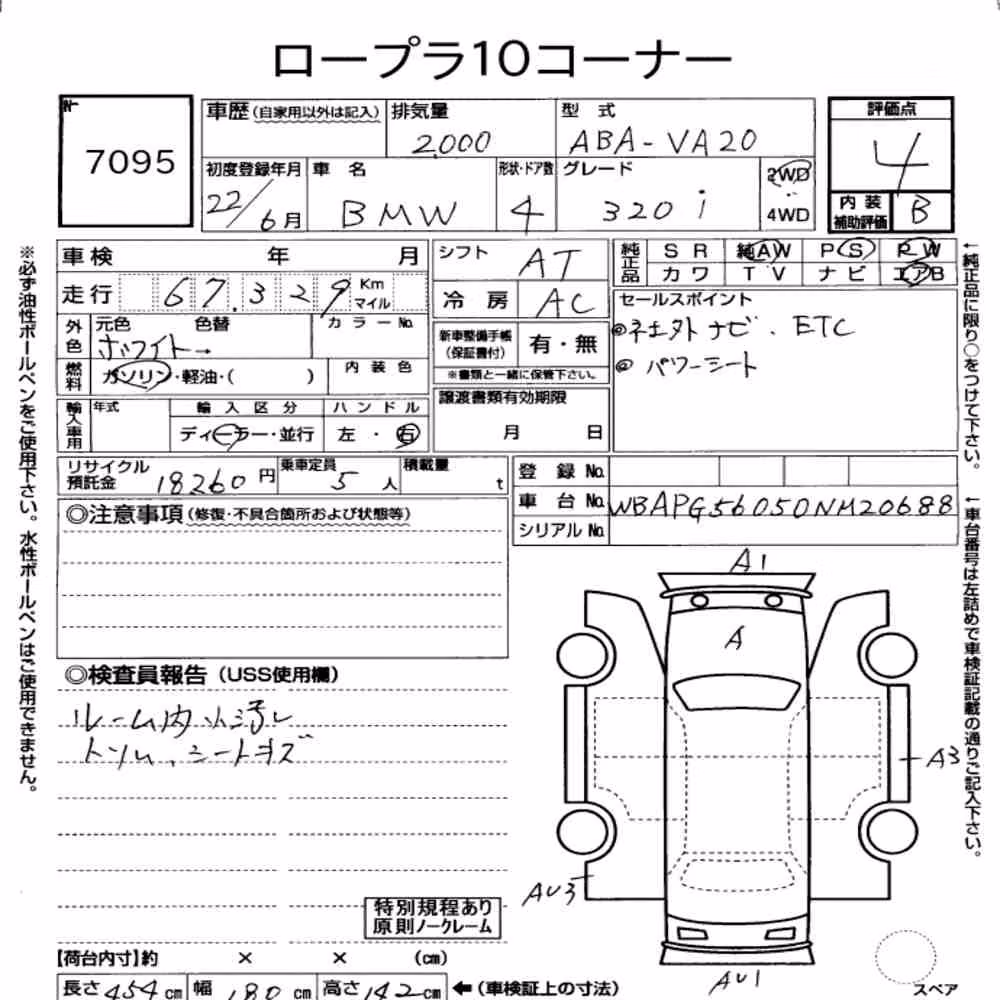 ロープラ10コーナー
No.
7095
車歴(自家用以外は記入)
排気量
2000
型式
ABA-VA20
評価点
4
初度登録年月
22/6月
車名
BMW
形状・ドア数
4
グレード
320i
2WD
4WD
内装
補助評価
B
車検 年 月
シフト
AT
純正品
SR 純AW PS PW
カワ TV ナビ エアB
走行 67,329 Km マイル
冷房
AC
セールスポイント
社外ナビ、ETC
パワーシート
外色
元色 色替
ホワイト→
カラーNo.
新車整備手帳
(保証書付)
有・無
※書類と一緒に保管下さい。
燃料
ガソリン・軽油・( )
内装色
輸入車用
年式
輸入区分
ディーラー・並行
ハンドル
左・右
譲渡書類有効期限
月 日
リサイクル
預託金
18260円
乗車定員
5人
積載量
t
登録No.
車台No.
WBAPG56050NM20688
シリアルNo.
◎注意事項(修復・不具合箇所および状態等)
◎検査員報告(USS使用欄)
ルーム内小汚レ
トリム、シートキズ
特別規程あり
原則ノークレーム
A1
A
A3
AU3
AU1
スペア
【荷台内寸】約 × × (cm)
長さ454cm 幅180cm 高さ142cm ←(車検証上の寸法)
※必ず油性ボールペンをご使用下さい。水性ボールペンはご使用できません。
←純正品に限り○をつけて下さい。
←車台番号は左詰めで車検証記載の通りご記入下さい。